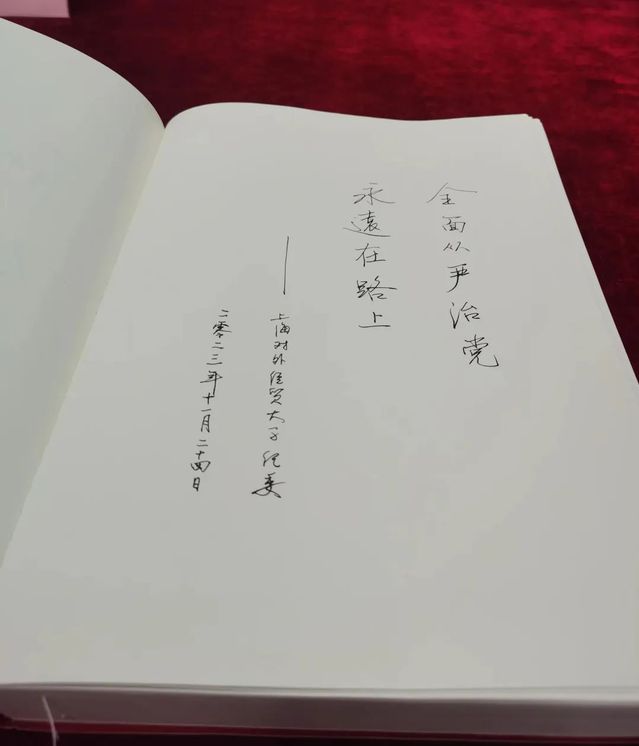 全面从严治党
永遠在路上
——上海对外经贸大学纪委
二零二三年十一月二十四日